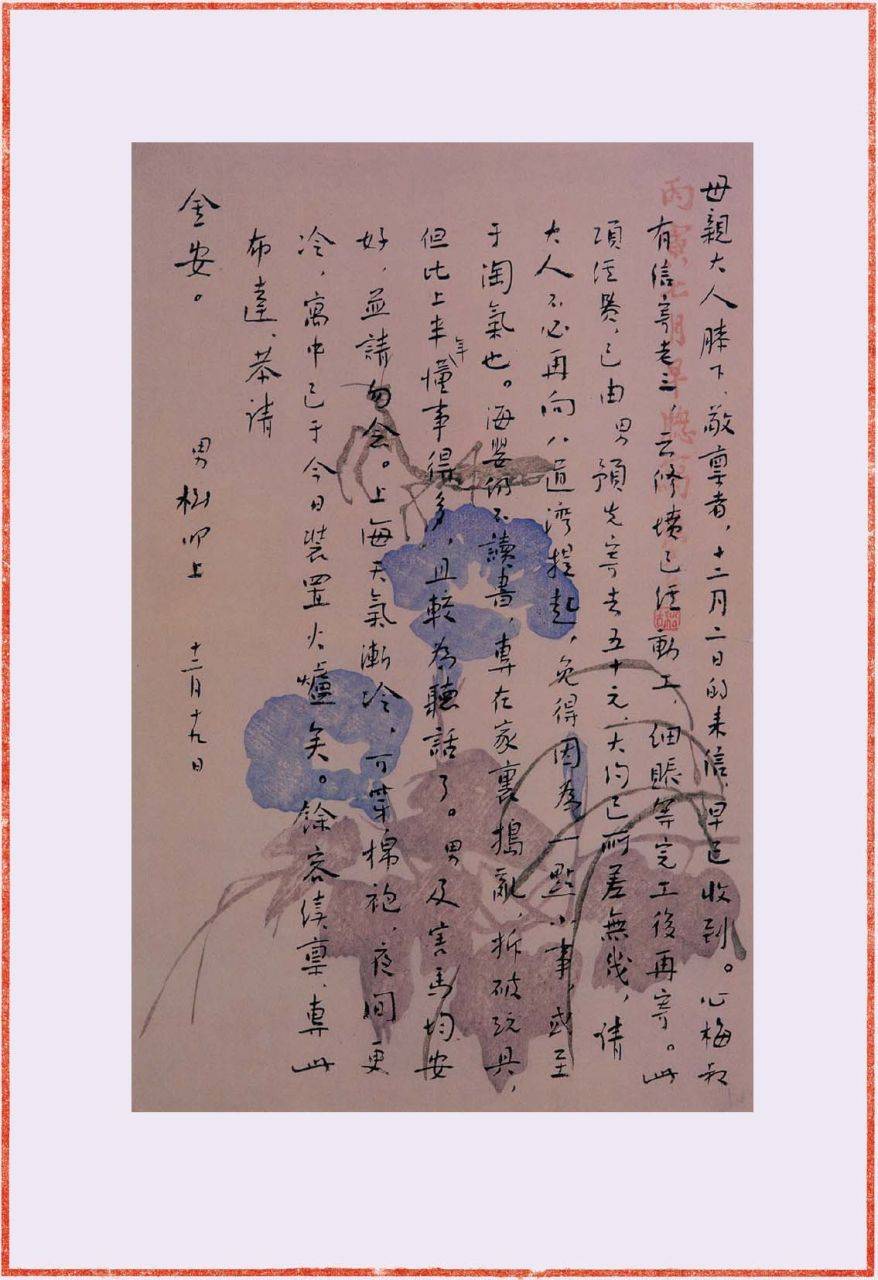 母親大人膝下，敬稟者，十二月二日的来信，早已收到。心梅叔
有信寄老三，云修墳已經動工，細賬等完工後再寄。此
項經費，已由男預先寄去五十元，大約已所差無幾，請
大人不必再向八道灣提起，免得因為一點小事，或至
于淘氣也。海嬰仍不讀書，專在家裏搗亂，拆破玩具，
但比上半年懂事得多，且較為聽話了。男及害馬均安
好，並請勿念。上海天氣漸冷，可穿棉袍，夜間更
冷，寓中已于今日裝置火爐矣。餘容續稟，專此
布達，恭請
金安。
男樹叩上 十二月十九日
丙寅七月